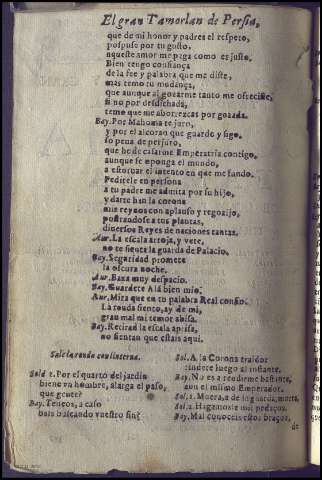 El gran Tamorlan de Persia,
que de mi honor y padres el respeto,
pospuse por tu gusto.
aqueste amor me paga como es justo.
Bien tengo confiança
de la fee y palabra que me diste,
mas temo tu mudança,
que aunque al gozarme tanto me ofreciste,
si no por desdichada,
temo que me aborrezcas por gozada.
Bay. Por Mahoma te juro,
y por el alcoran que guardo y sigo,
so pena de perjuro,
que he de casarme Emperatriz contigo,
aunque se oponga el mundo,
a estoruar el intento en que me fundo.
Pedirele en persona
a tu padre me admita por su hijo,
y darte han la corona
mis reynos con aplauso y regozijo,
postrandose a tus plantas,
diuersos Reyes de naciones tantas.
Aur. La escala arroja, y vete,
no te sienta la guarda de Palacio.
Bay. Seguridad promete
la oscura noche.
Aur. Baxa muy despacio.
Bay. Guardete Alá bien mio.
Aur. Mira que en tu palabra Real confio.
La ronda siento, ay de mi,
gran mal mi temor auisa.
Bay. Retirad la escala aprisa,
no sientan que estais aqui.
Sale la ronda con linterna.
Sold 1. Por el quarto del jardin
biene vn hombre, alarga el paso,
que gente?
Bay. Teneos, a caso
bais buscando vuestro fin?
Sol. A la Corona traidor
rindete luego al instante.
Bay. No es a rendirme bastante,
aun el mismo Emperador.
Sol. 1. Muera, a de la guarda, muera,
Sol. 2. Hagamosle mil pedaços.
Bay. Mal conoceis estos braços,
de